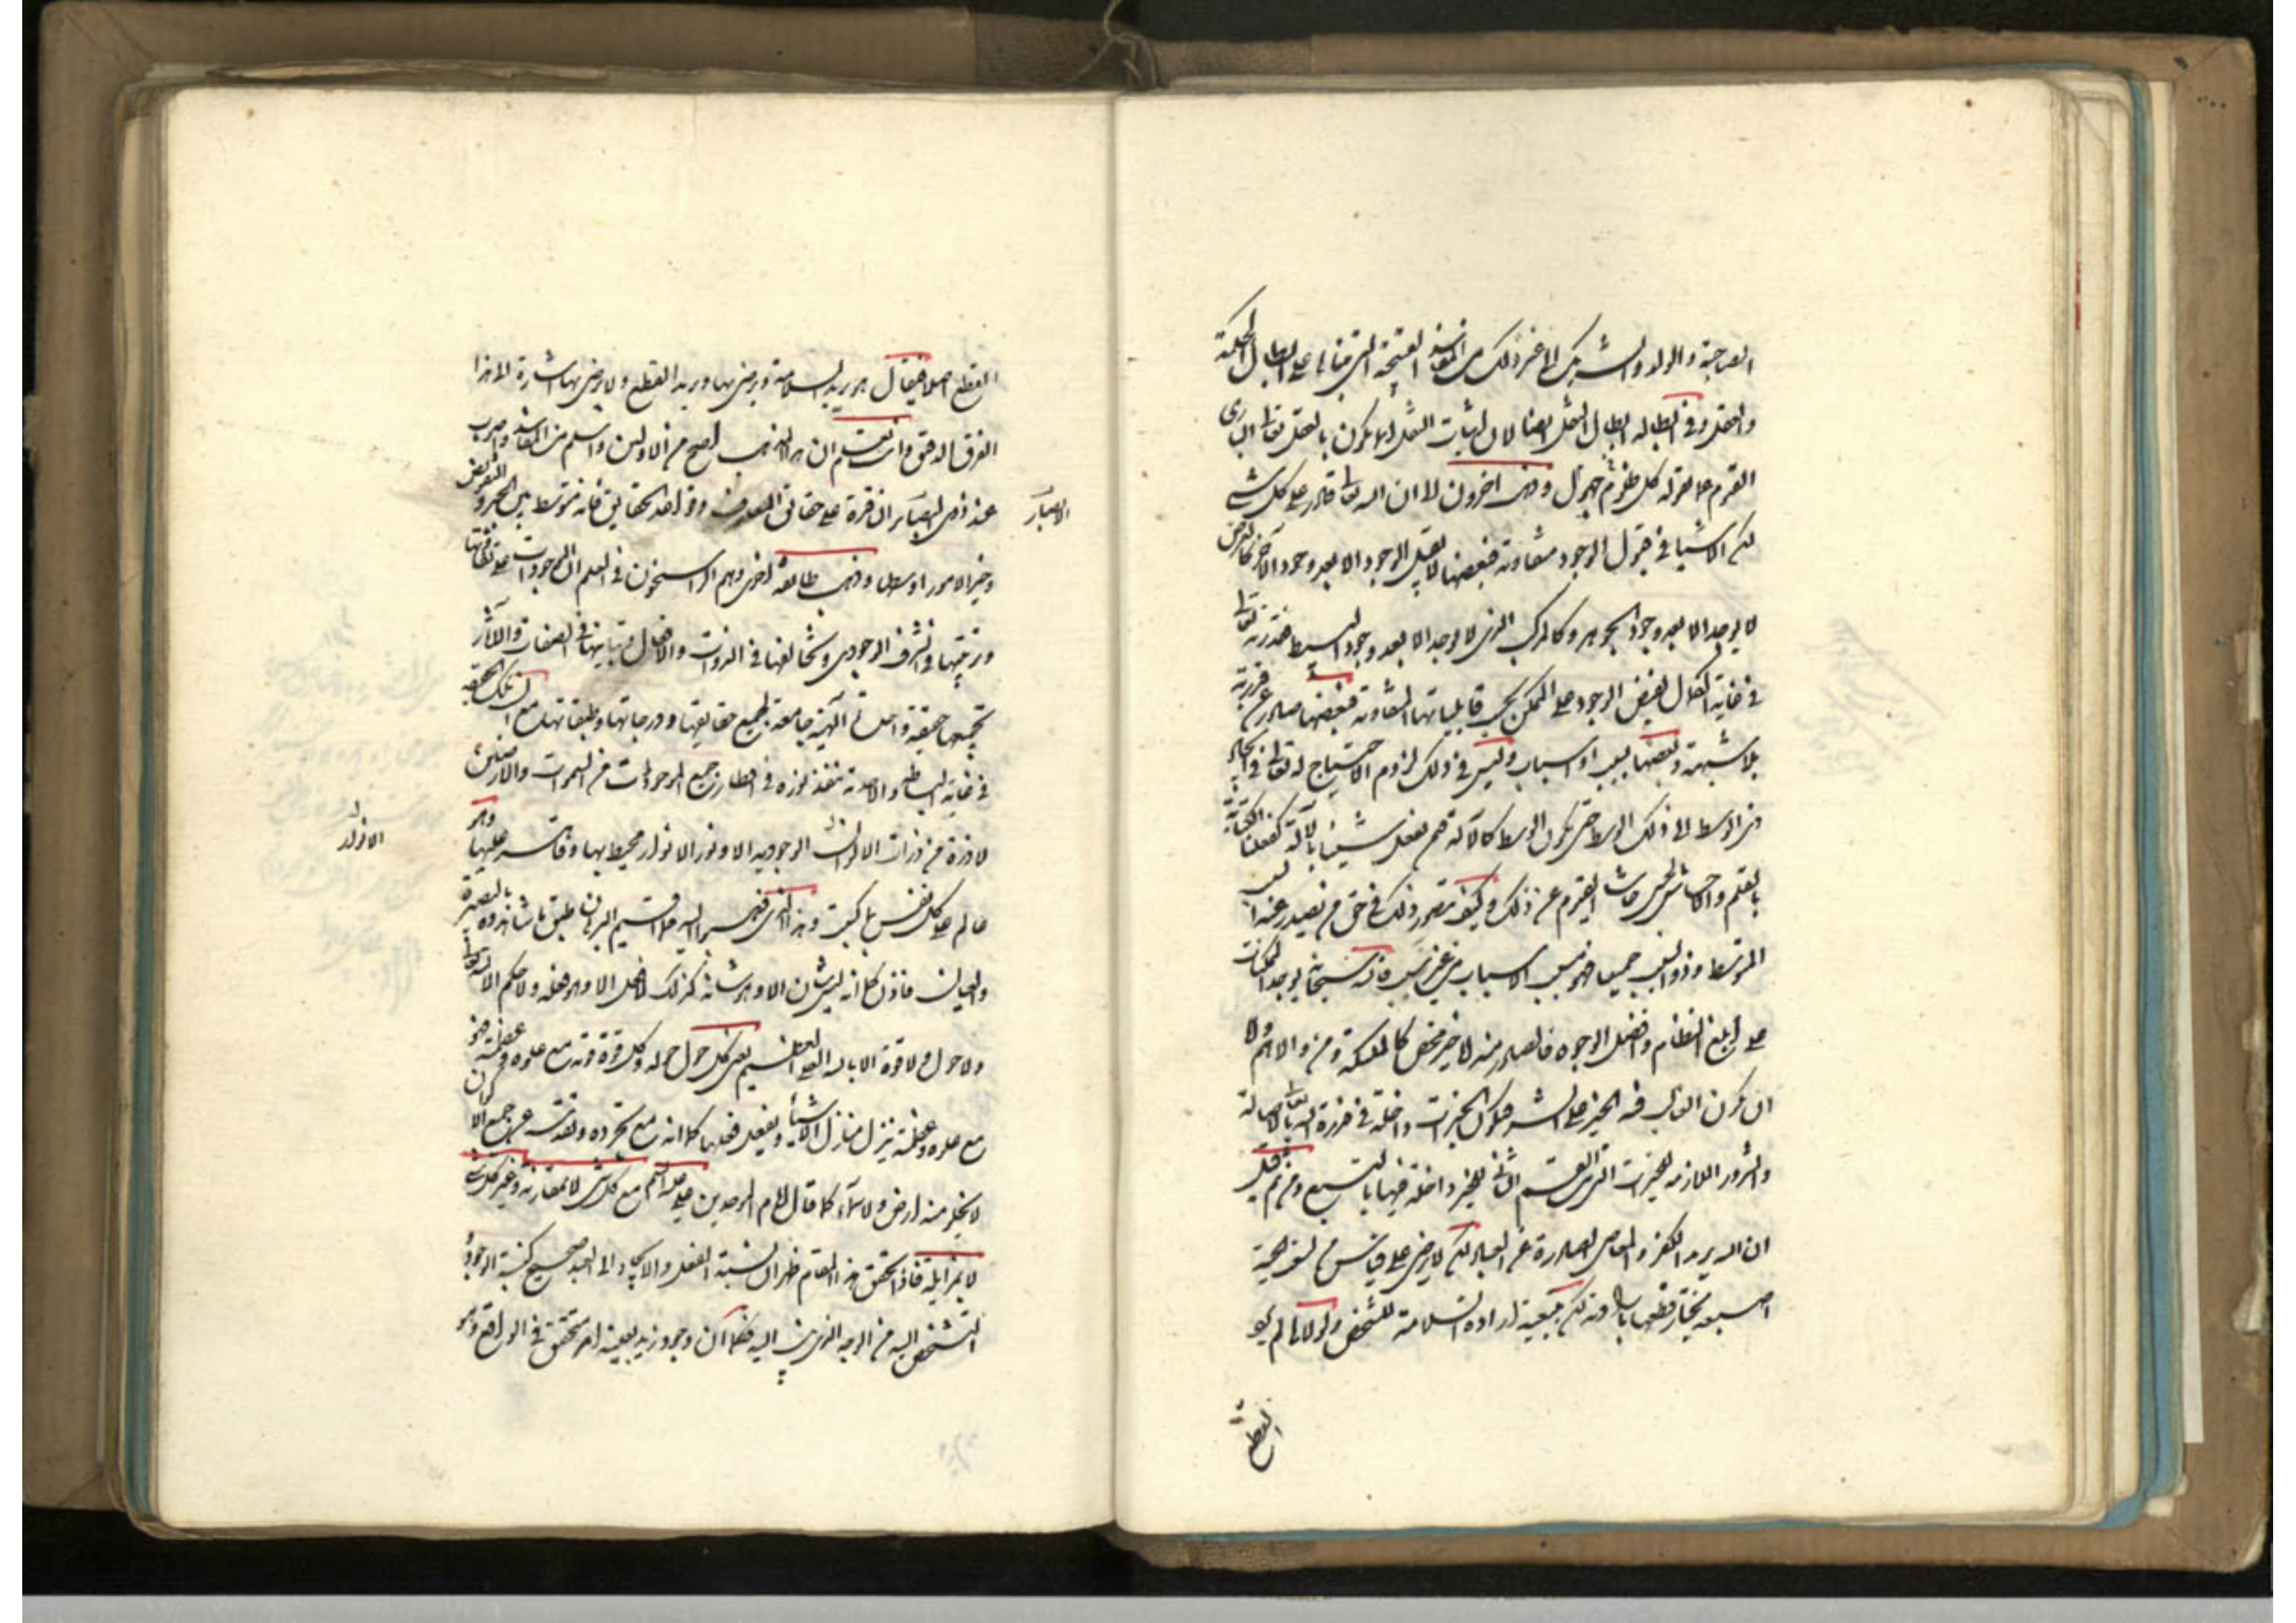 الصاحبة والولد والشريك الى غير ذلك من المفاسد القبيحة التي مبناها على ابطال الحكمة
والعقل وفي ابطاله ابطال النقل ايضا لان اثبات النقل انما يكون بالعقل تعالى الباري
القيوم عما يقوله كل ظلوم جهول وذهب آخرون الى ان الله تعالى قادر على كل شئ
لكن الاشيا في قبول الوجود متفاوتة فبعضها لا يقبل الوجود الا بعد وجود الآخر كالعرض
لا يوجد الا بعد وجود الجوهر وكالمركب الذي لا يوجد الا بعد وجود البسيط فقدرته تعالى
في غاية الكمال يفيض الوجود على الممكن بحسب قابلياتها المتفاوتة فبعضها صادر عن قدرته
بلا سبب وبعضها بسبب او اسباب وليس في ذلك لزوم الاحتياج له تعالى في ايجاد
ذي الوسط الى ذلك الوسط حتى يكون الوسط كالآلة فمن يفعل شيئا بآلة كفعلنا الكتابة
بالقلم والاحساس بالحس حاشا القيوم عن ذلك وكيف يتصور ذلك في حق من يصدر عنه السبب
المتوسط وذو السبب جميعا فهو مسبب الاسباب من غير سبب فانه سبحانه يوجد الممكنات
على ابلغ النظام وافضل الوجوه فالصادر منه اما خير محض كالملئكة ومن والاهم واما
ان يكون الغالب فيه الخير على الشر فيكون الخيرات داخلة في قدرة الله تعالى بالاصالة
والشرور اللازمة للخيرات التي من القسم الثاني للخير داخلة فيها بالتبع ومن ثم قيل
ان الله يريد الكفر والمعاصي الصادرة عن العباد لكن لا يرضى على قياس من لسع الحية
اصبعه يختار قطعها بارادته لكن بتبعية ارادة السلامة للشخص ولولاها لم يرد
القطع
القطع اصلا فيقال هو يريد السلامة ويرضى بها ويريد القطع ولا يرضى بها اشارة الى هذا
الفرق الدقيق وانت تعلم ان هذا المذهب اصح من الاولين واسلم من المفاسد واصوب
عند ذوي البصاير النافذة على حقائق المعارف وفواحد الحقايق فانه متوسط بين الجبر والتفويض
وخير الامور اوسطها وذهب طائفة اخرى وهم الراسخون في العلم الى ان الموجودات على تفاوتها
وترتبها في الشرف الوجودي وتخالفها في الذوات والافعال وتباينها في الصفات والآثار
تجمعها حقيقة واحدة آلهية جامعة لجميع حقايقها ودرجاتها وطبقاتها مع ان تلك الحقيقة
في غاية البساطة والاحدية ينفذ نوره في اقطار جميع الموجودات من السموات والارضين
لا ذرة من ذرات الاكوان الوجودية الا ونور الانوار محيط بها وقاهر عليها وهو
قائم على كل نفس بما كسبت وهذا الذي ذهبوا اليه مما قسيم البرهان طبق ما شاهدوه بالبصيرة
والعيان فاذن كما انه ليس شان الا وهو شانه كذلك لا فعل الا وهو فعله ولا حكم الا لله تعالى
ولا حول ولا قوة الا بالله العلي العظيم يعني كل حول حوله وكل قوة قوته مع علوه وعظمته فهو
مع علوه وعظمته ينزل منازل الاشياء ويفعل فعلها كما انه مع تجرده وتقدسه عن جميع الاكوان
لا يخلو منه ارض ولا سماء كما قال امام الموحدين عليه السلام مع كل شئ لا بمقارنة وغير كل شئ
لا بمزايلة فاذا تحقق هذا المقام ظهر ان نسبة الفعل والايجاد الى العبد صحيح كنسبة الوجود
والتشخص اليه من الوجه الذي ينسب اليه فكما ان وجود زيد بعينه امر متحقق في الواقع وهو
الابصار
الانوار